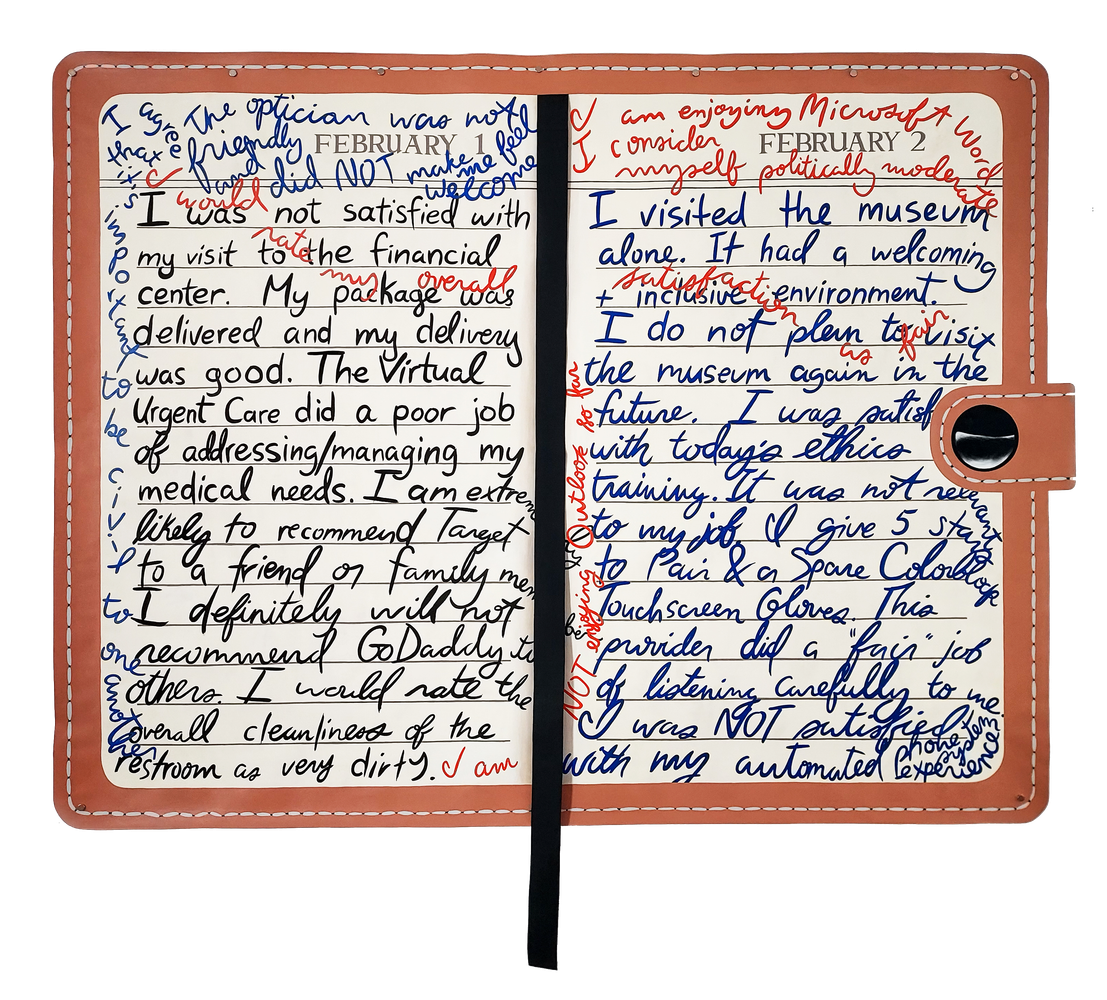 The optician was not
FEBRUARY 1
friendly
and did NOT make me feel
welcome
I agree
that
it's
important
to
be
civil
to
one
another
I was not satisfied with
my visit to the financial
center. My package was
delivered and my delivery
was good. The Virtual
Urgent Care did a poor job
of addressing/managing my
medical needs. I am extrem
likely to recommend Target
to a friend or family mem
I definitely will not
recommend GoDaddy to
others. I would rate the
overall cleanliness of the
restroom as very dirty.
I would
rate
my overall
satisfaction
as fair
I am
NOT enjoying Outlook so far
I am enjoying Microsoft Word
FEBRUARY 2
I consider
myself politically moderate
I visited the museum
alone. It had a welcoming
+ inclusive environment.
I do not plan to visit
the museum again in the
future. I was satisf
with today's ethics
training. It was not relevant
to my job. I give 5 stars
to Pair & a Spare Colorblock
Touchscreen Gloves. This
provider did a "fair" job
of listening carefully to me.
I was NOT satisfied
with my automated phone system
experience.